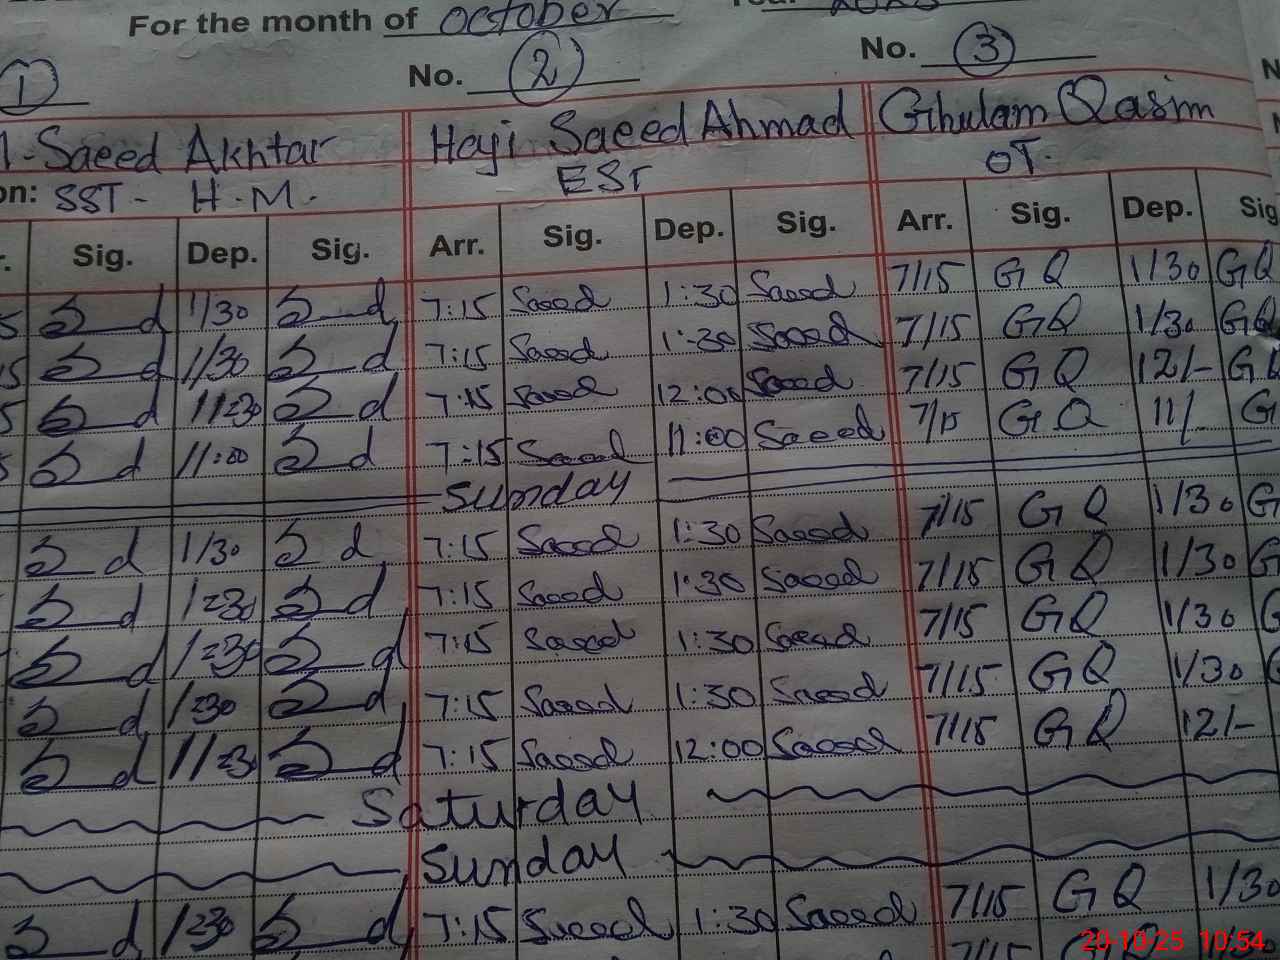 For the month of October
No. 2 No. 3
1
Saeed Akhtar Haji Saeed Ahmad Ghulam Qasim
on: SST - H.M. EST OT.
Sig. Dep. Sig. Arr. Sig. Dep. Sig. Arr. Sig. Dep. Sig
5 S d 1/30 S d 7:15 Saeed 1:30 Saeed 7/15 GQ 1/30 GQ
15 S d 1/30 S d 7:15 Saeed 1:30 Saeed 7/15 GQ 1/30 GQ
5 S d 11=30 S d 7:15 Saeed 12:00 Saeed 7/15 GQ 12/- GQ
5 S d 11:00 S d 7:15 Saeed 11:00 Saeed 7/15 GQ 11/- G
Sunday
S d 1/30 S d 7:15 Saeed 1:30 Saeed 7/15 GQ 1/30 G
S d 1=30 S d 7:15 Saeed 1:30 Saeed 7/15 GQ 1/30 G
S d 1=30 S d 7:15 Saeed 1:30 Saeed 7/15 GQ 1/30 G
S d 1=30 S d 7:15 Saeed 1:30 Saeed 7/15 GQ 1/30
S d 11=30 S d 7:15 Saeed 12:00 Saeed 7/15 GQ 12/-
Saturday
Sunday
S d 1=30 S d 7:15 Saeed 1:30 Saeed 7/15 GQ 1/30
7/15
20-10-25 10:54